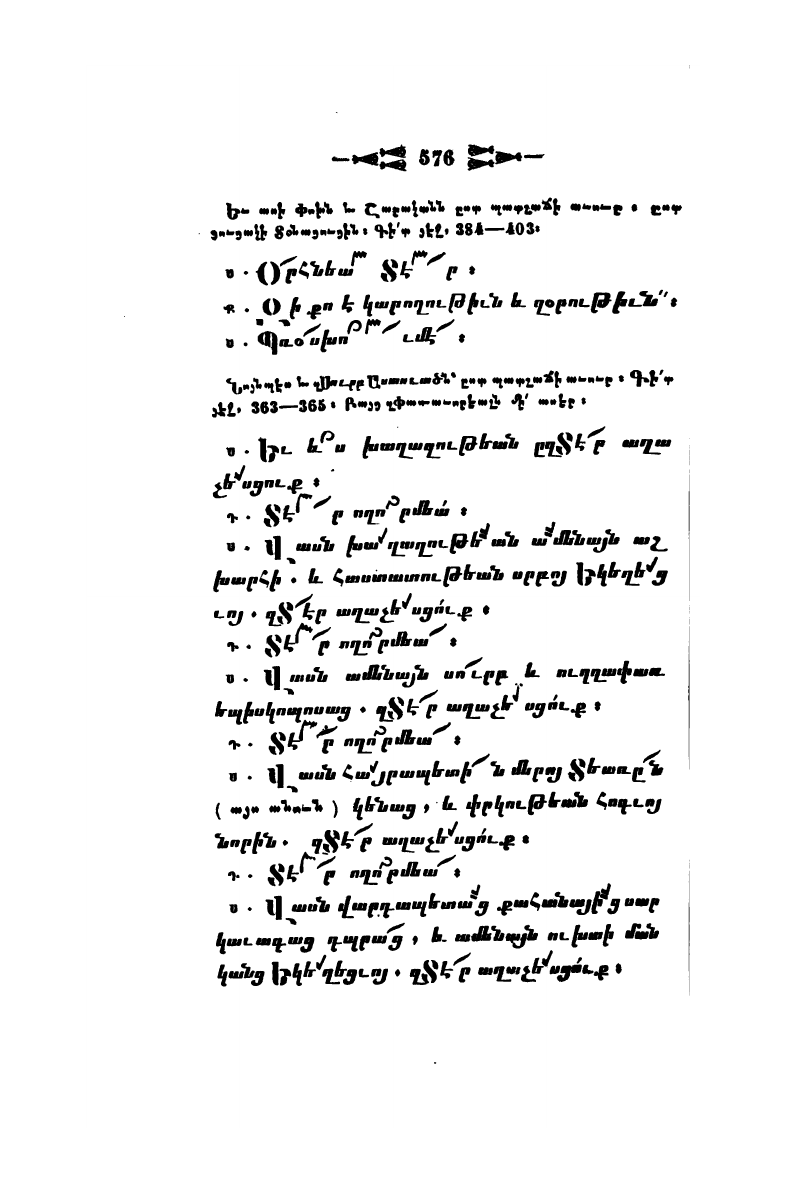 576
Եւ ասի Փոխն և Շարականն ըստ պատշաճի աւուրը ։ ըստ
ցուցակի Տօնացուցին։ Գի՛տ յէջ, 384—403։
Ս ․ Օրհնեա Տէր ։
Ք ․ Օի քո է կարողութիւն և զօրութիւն ։
Ս ․ Պռօսխումէ ։
Նոյնպէս և զՍուրբ Աստուածն՝ ըստ պատշաճի աւուրը ։ Գի՛տ
յէջ, 363—365 ։ Բայց զՓառաւորեալն մի՛ ասէր ։
Ս ․ Եւ ևս խաղաղութեան ըզՏէր աղա
չեսցուք ։
Դ ․ Տէր ողորմեա ։
Ս ․ Վասն խաղաղութեան ամենայն աշ
խարհի ․ և հաստատութեան սրբոյ Եկեղեց
ւոյ ․ զՏէր աղաչեսցուք ։
Դ ․ Տէր ողորմեա ։
Ս ․ Վասն ամենայն սուրբ և ուղղափառ
եպիսկոպոսաց ․ զՏէր աղաչեսցուք ։
Դ ․ Տէր ողորմեա ։
Ս ․ Վասն Հայրապետին մերոյ Տեառըն
( այս անուն ) կենաց , և փրկութեան հոգւոյ
նորին ․ զՏէր աղաչեսցուք ։
Դ ․ Տէր ողորմեա ։
Ս ․ Վասն վարդապետաց քահանայից սար
կաւագաց դպրաց , և ամենայն ուխտի ման
կանց Եկեղեցւոյ ․ զՏէր աղաչեսցուք ։